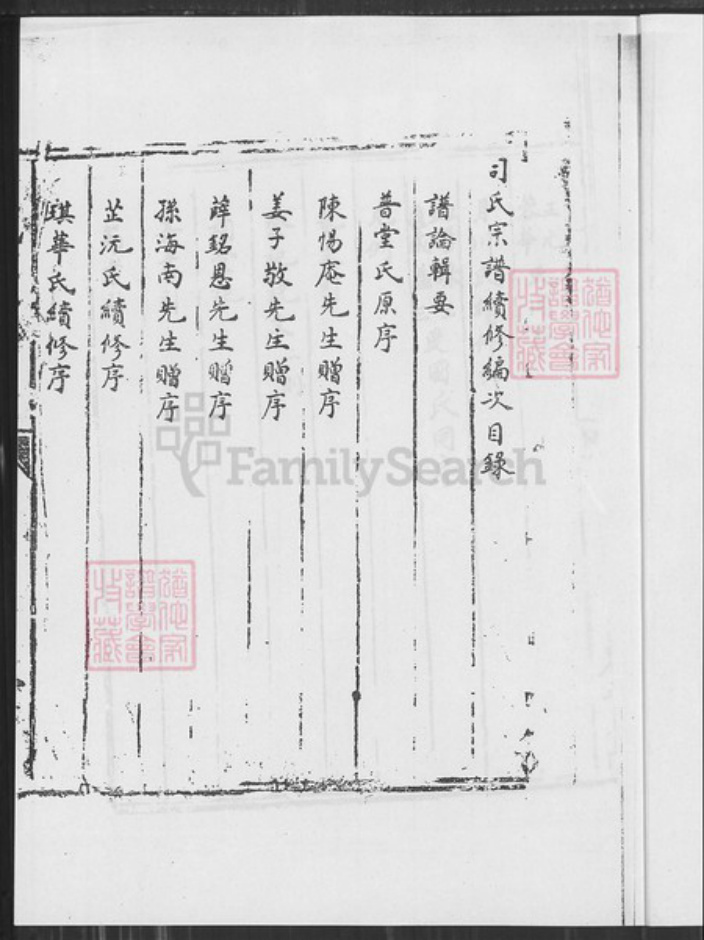 司氏宗譜續修編次目錄
譜論輯要
普堂氏原序
陳惕庵先生贈序
姜子敬先生贈序
薛紹恩先生贈序
孫海南先生贈序
芷沅氏續修序
琪華氏續修序
FamilySearch